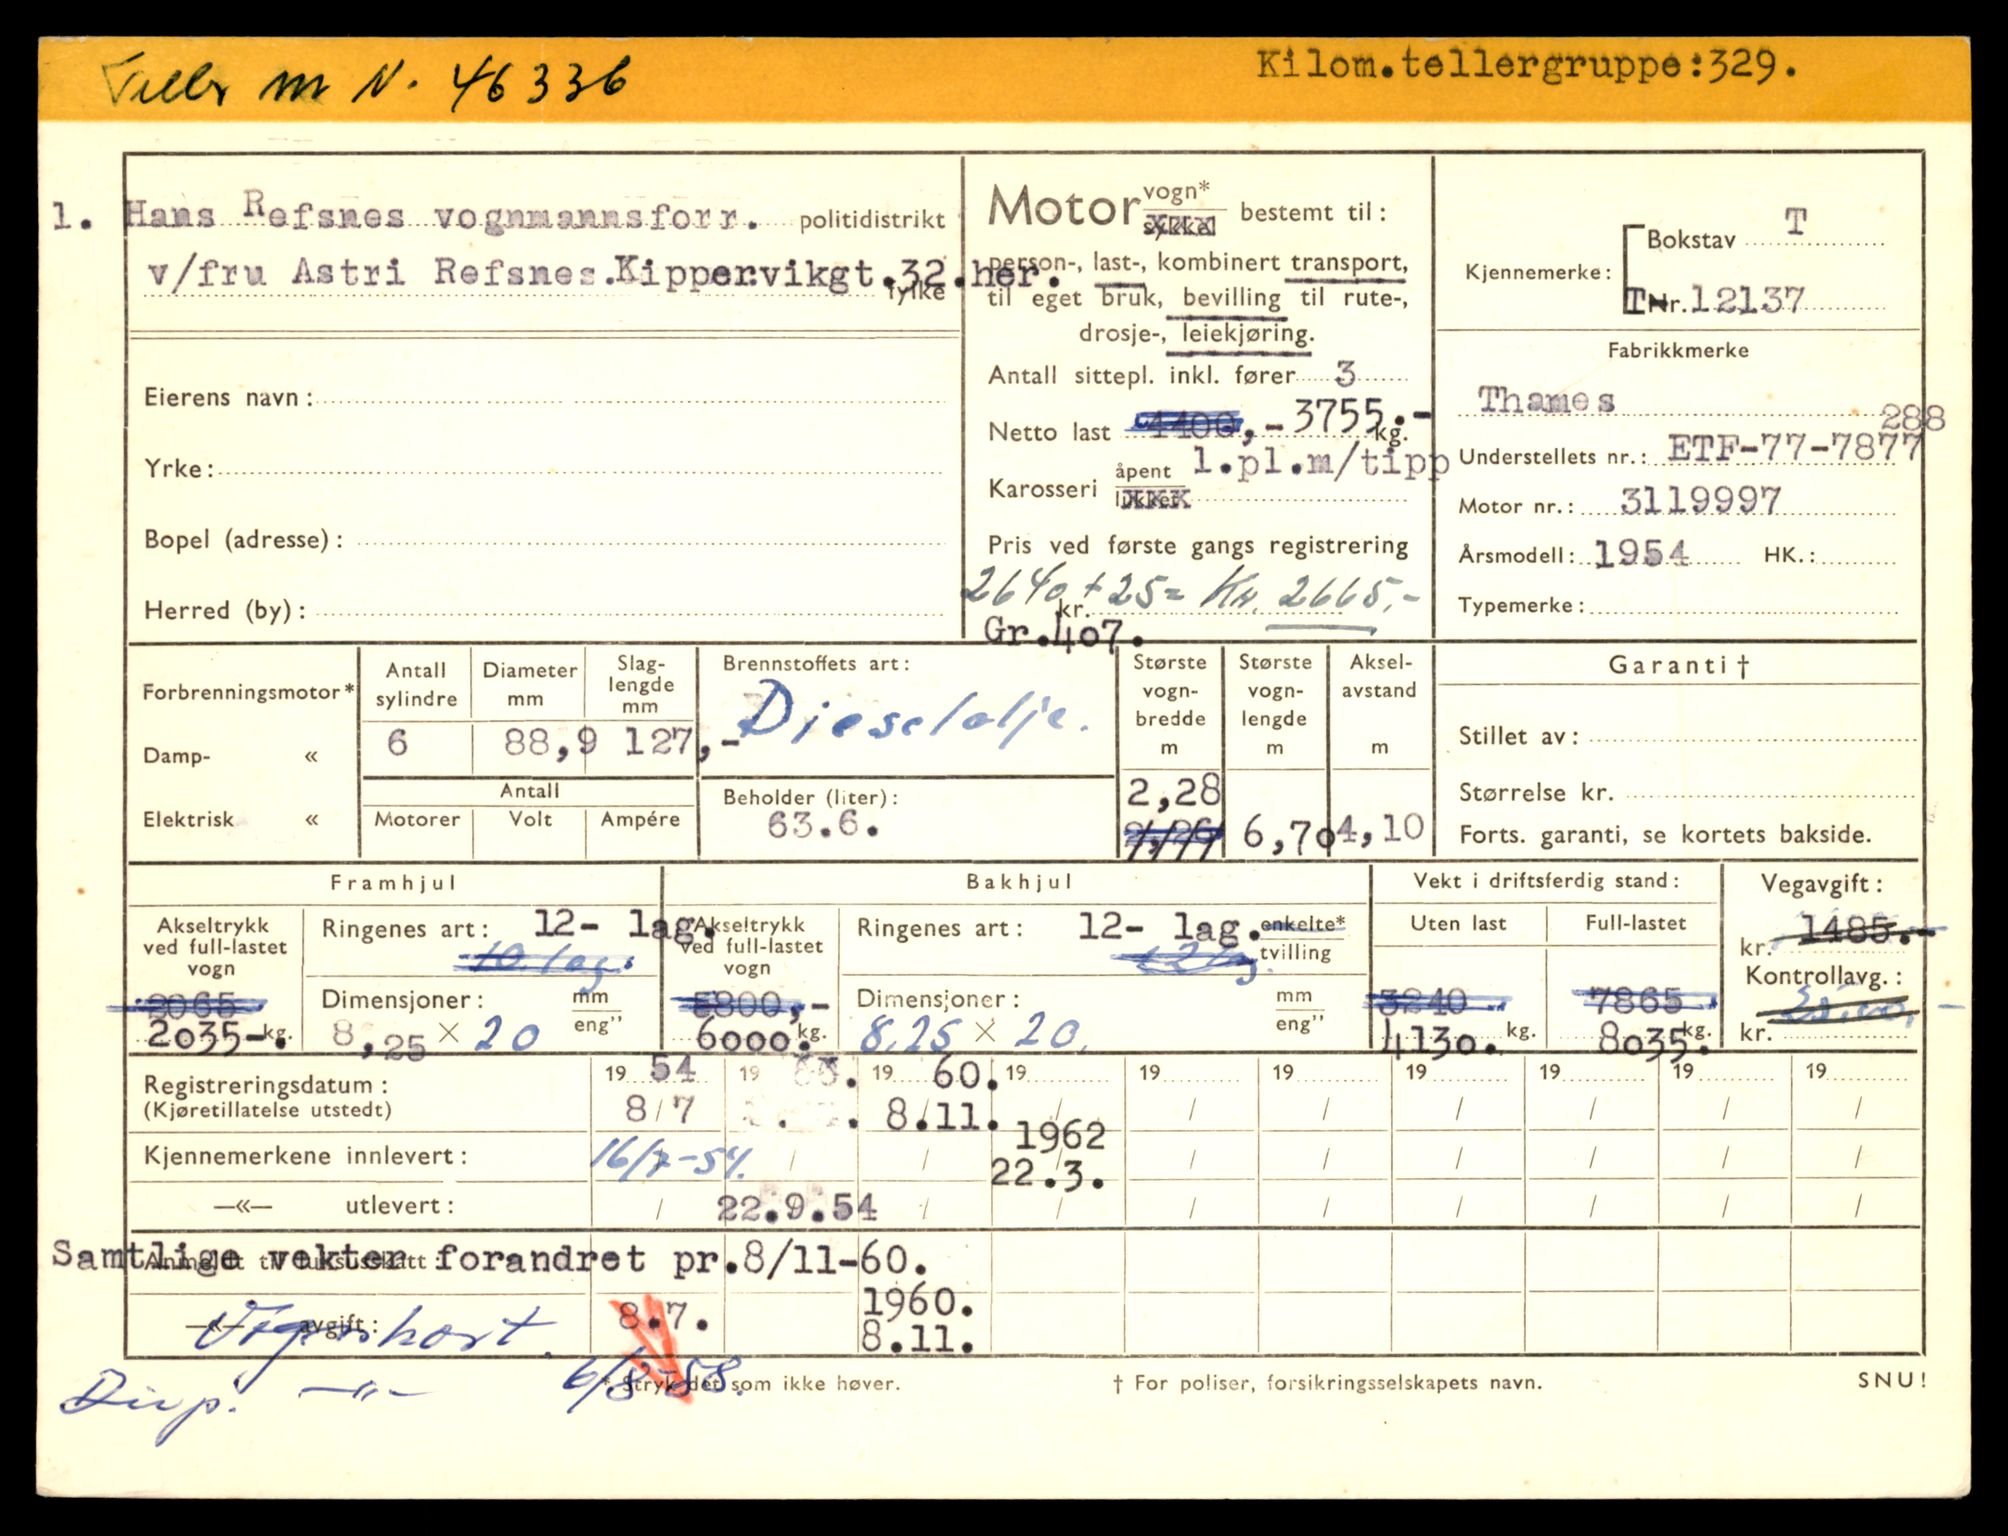 m N. 46336
Kilom.tellergruppe:329.
1. Hans Refsnes vognmannsforr. politidistrikt
v/fru Astri Refsnes.Kippervikgt.32.her.
fylke
Eierens navn:
Yrke:
Bopel (adresse):
Herred (by):
Motor vogn* bestemt til:
sykkel
person-, last-, kombinert transport,
til eget bruk, bevilling til rute-,
drosje-, leiekjøring.
Antall sittepl. inkl. fører 3
Netto last 4400,- 3755.- kg.
Karosseri åpent 1.pl.m/tipp
lukket
Pris ved første gangs registrering
2640 + 25 = Kr. 2665,-
kr.
Gr.407.
Kjennemerke: Bokstav T
TNr.12137
Fabrikkmerke
Thames
288
Understellets nr.: ETF-77-7877
Motor nr.: 3119997
Årsmodell: 1954 HK.:
Typemerke:
Forbrenningsmotor*
Damp- «
Elektrisk «
Antall sylindre
Diameter mm
Slag-lengde mm
6 88,9 127,-
Antall
Motorer Volt Ampére
Brennstoffets art:
Dieselolje.
Beholder (liter):
63.6.
Største vogn-bredde m
Største vogn-lengde m
Aksel-avstand m
2,28
2,26 6,70 4,10
Garanti †
Stillet av:
Størrelse kr.
Forts. garanti, se kortets bakside.
Framhjul
Akseltrykk ved full-lastet vogn
2065
2035-kg.
Ringenes art: 12- lag.
10 lag.
Dimensjoner: mm
eng"
8,25 × 20
Bakhjul
Akseltrykk ved full-lastet vogn
5800,-
6000 kg.
Ringenes art: 12- lag. enkelte*
12 lag. tvilling
Dimensjoner: mm
eng"
8.25 × 20.
Vekt i driftsferdig stand:
Uten last Full-lastet
3240 7865
4130. kg. 8035 kg.
Vegavgift:
kr. 1485.-
Kontrollavg.:
kr.
Registreringsdatum: 19 54 19 19 60. 19 19 19 19 19 19 19
(Kjøretillatelse utstedt) 8/7 8.11.
1962
Kjennemerkene innlevert: 16/7-54. 22.3.
—«— utlevert: 22.9.54
Anmeldt til luksusskatt:
Samtlige vekter forandret pr.8/11-60.
—«— avgift: 8.7. 1960.
8.11.
Vognkort.
Dup. —«— 6/8-58.
* Stryk det som ikke høver.
† For poliser, forsikringsselskapets navn.
SNU!